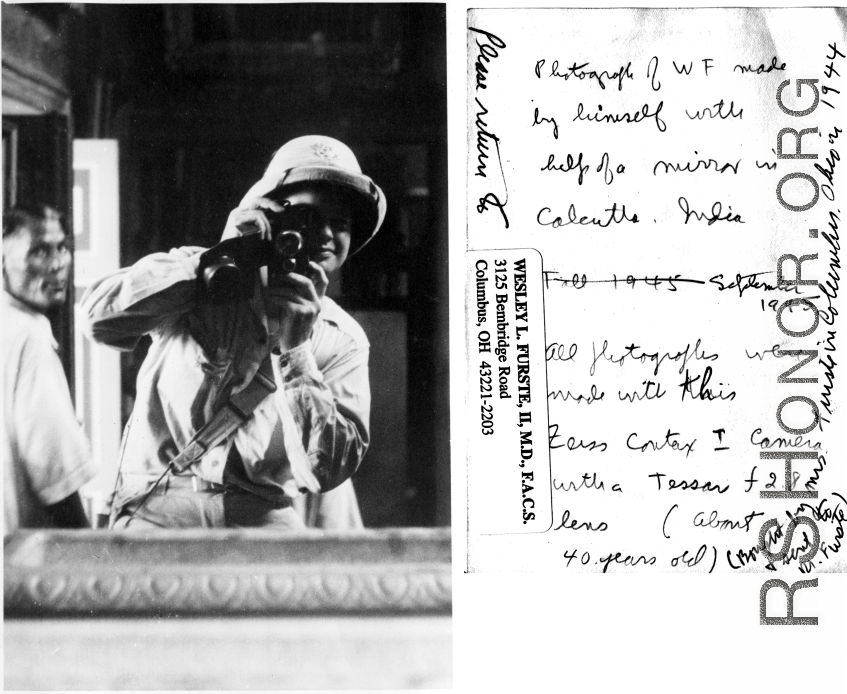 Please return to
Photograph of WF made
by himself with
help of a mirror in
Calcutta. India
Fall 1945 September
All photographs were
made with this
Zeiss Contax I Camera
with a Tessar f 2.8
lens (about
40 years old)
WESLEY L. FURSTE, II, M.D., F.A.C.S.
3125 Bembridge Road
Columbus, OH 43221-2203
Mrs. Furste in Columbus, Ohio in 1944
RSHONOR.ORG